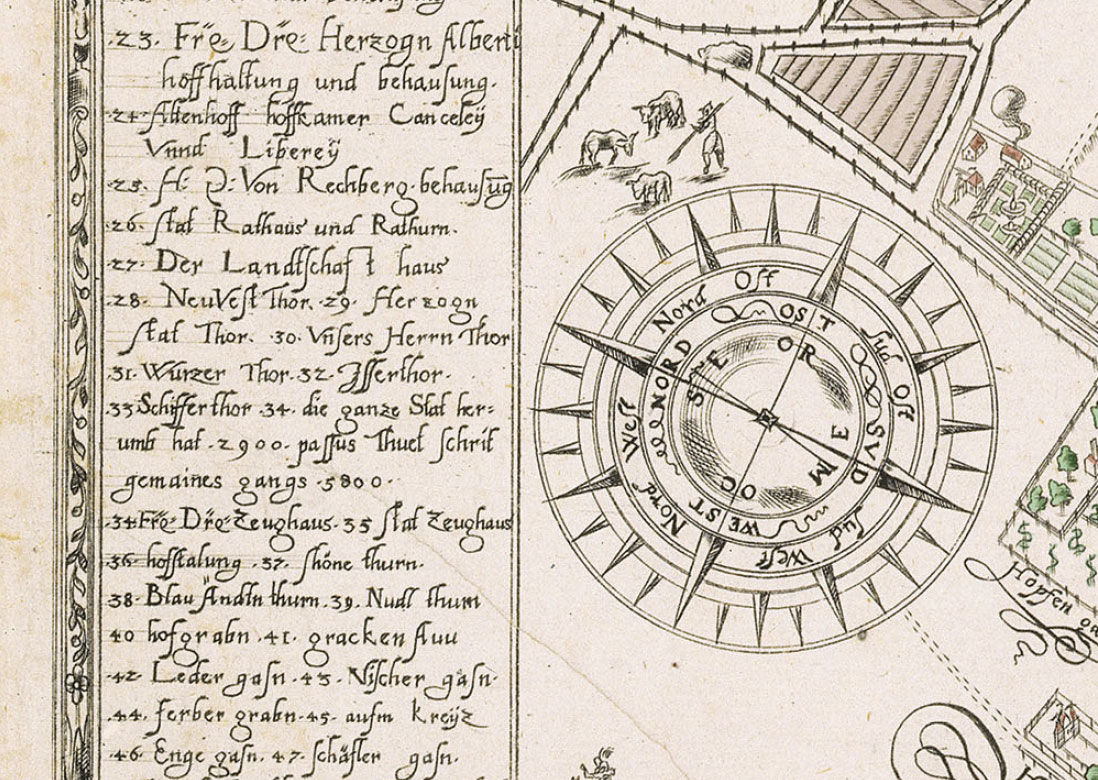 23. Frē. Drē. Herzogn Alberti
hoffhaltung und behausung.
24. Altenhoff hoffkamer Canceley
Vnnd Liberey
25. H: Von Rechberg. behausūg
26. stat Rathaus und Rathurn.
27. Der Landtschaft haus
28. NeuVest Thor. 29. Herzogn
stat Thor. 30. Vnsers Herrn Thor
31. Wurzer Thor. 32. Isserthor.
33 Schifferthor. 34. die ganze Stat her:
umb hat. 2900. passus thuet schrit
gemaines gangs. 5800.
34. Frē. Drē. Zeughaus. 35 stat Zeughaus
36. hofstalung. 37. shöne thurn.
38. Blau Ändtn thurn. 39. Nudl thurn
40 hofgrabn. 41. gracken Auu
42. Leder gasn. 43. Vischer gasn.
44. ferber grabn. 45. aufm Kreyz
46. Enge gasn. 47. schäfler gasn.
Nord Ost
OST
Sud Ost
SVD
Sud West
WEST
Nord West
NORD
SEPTE
OR
ME
OC
Hopfen